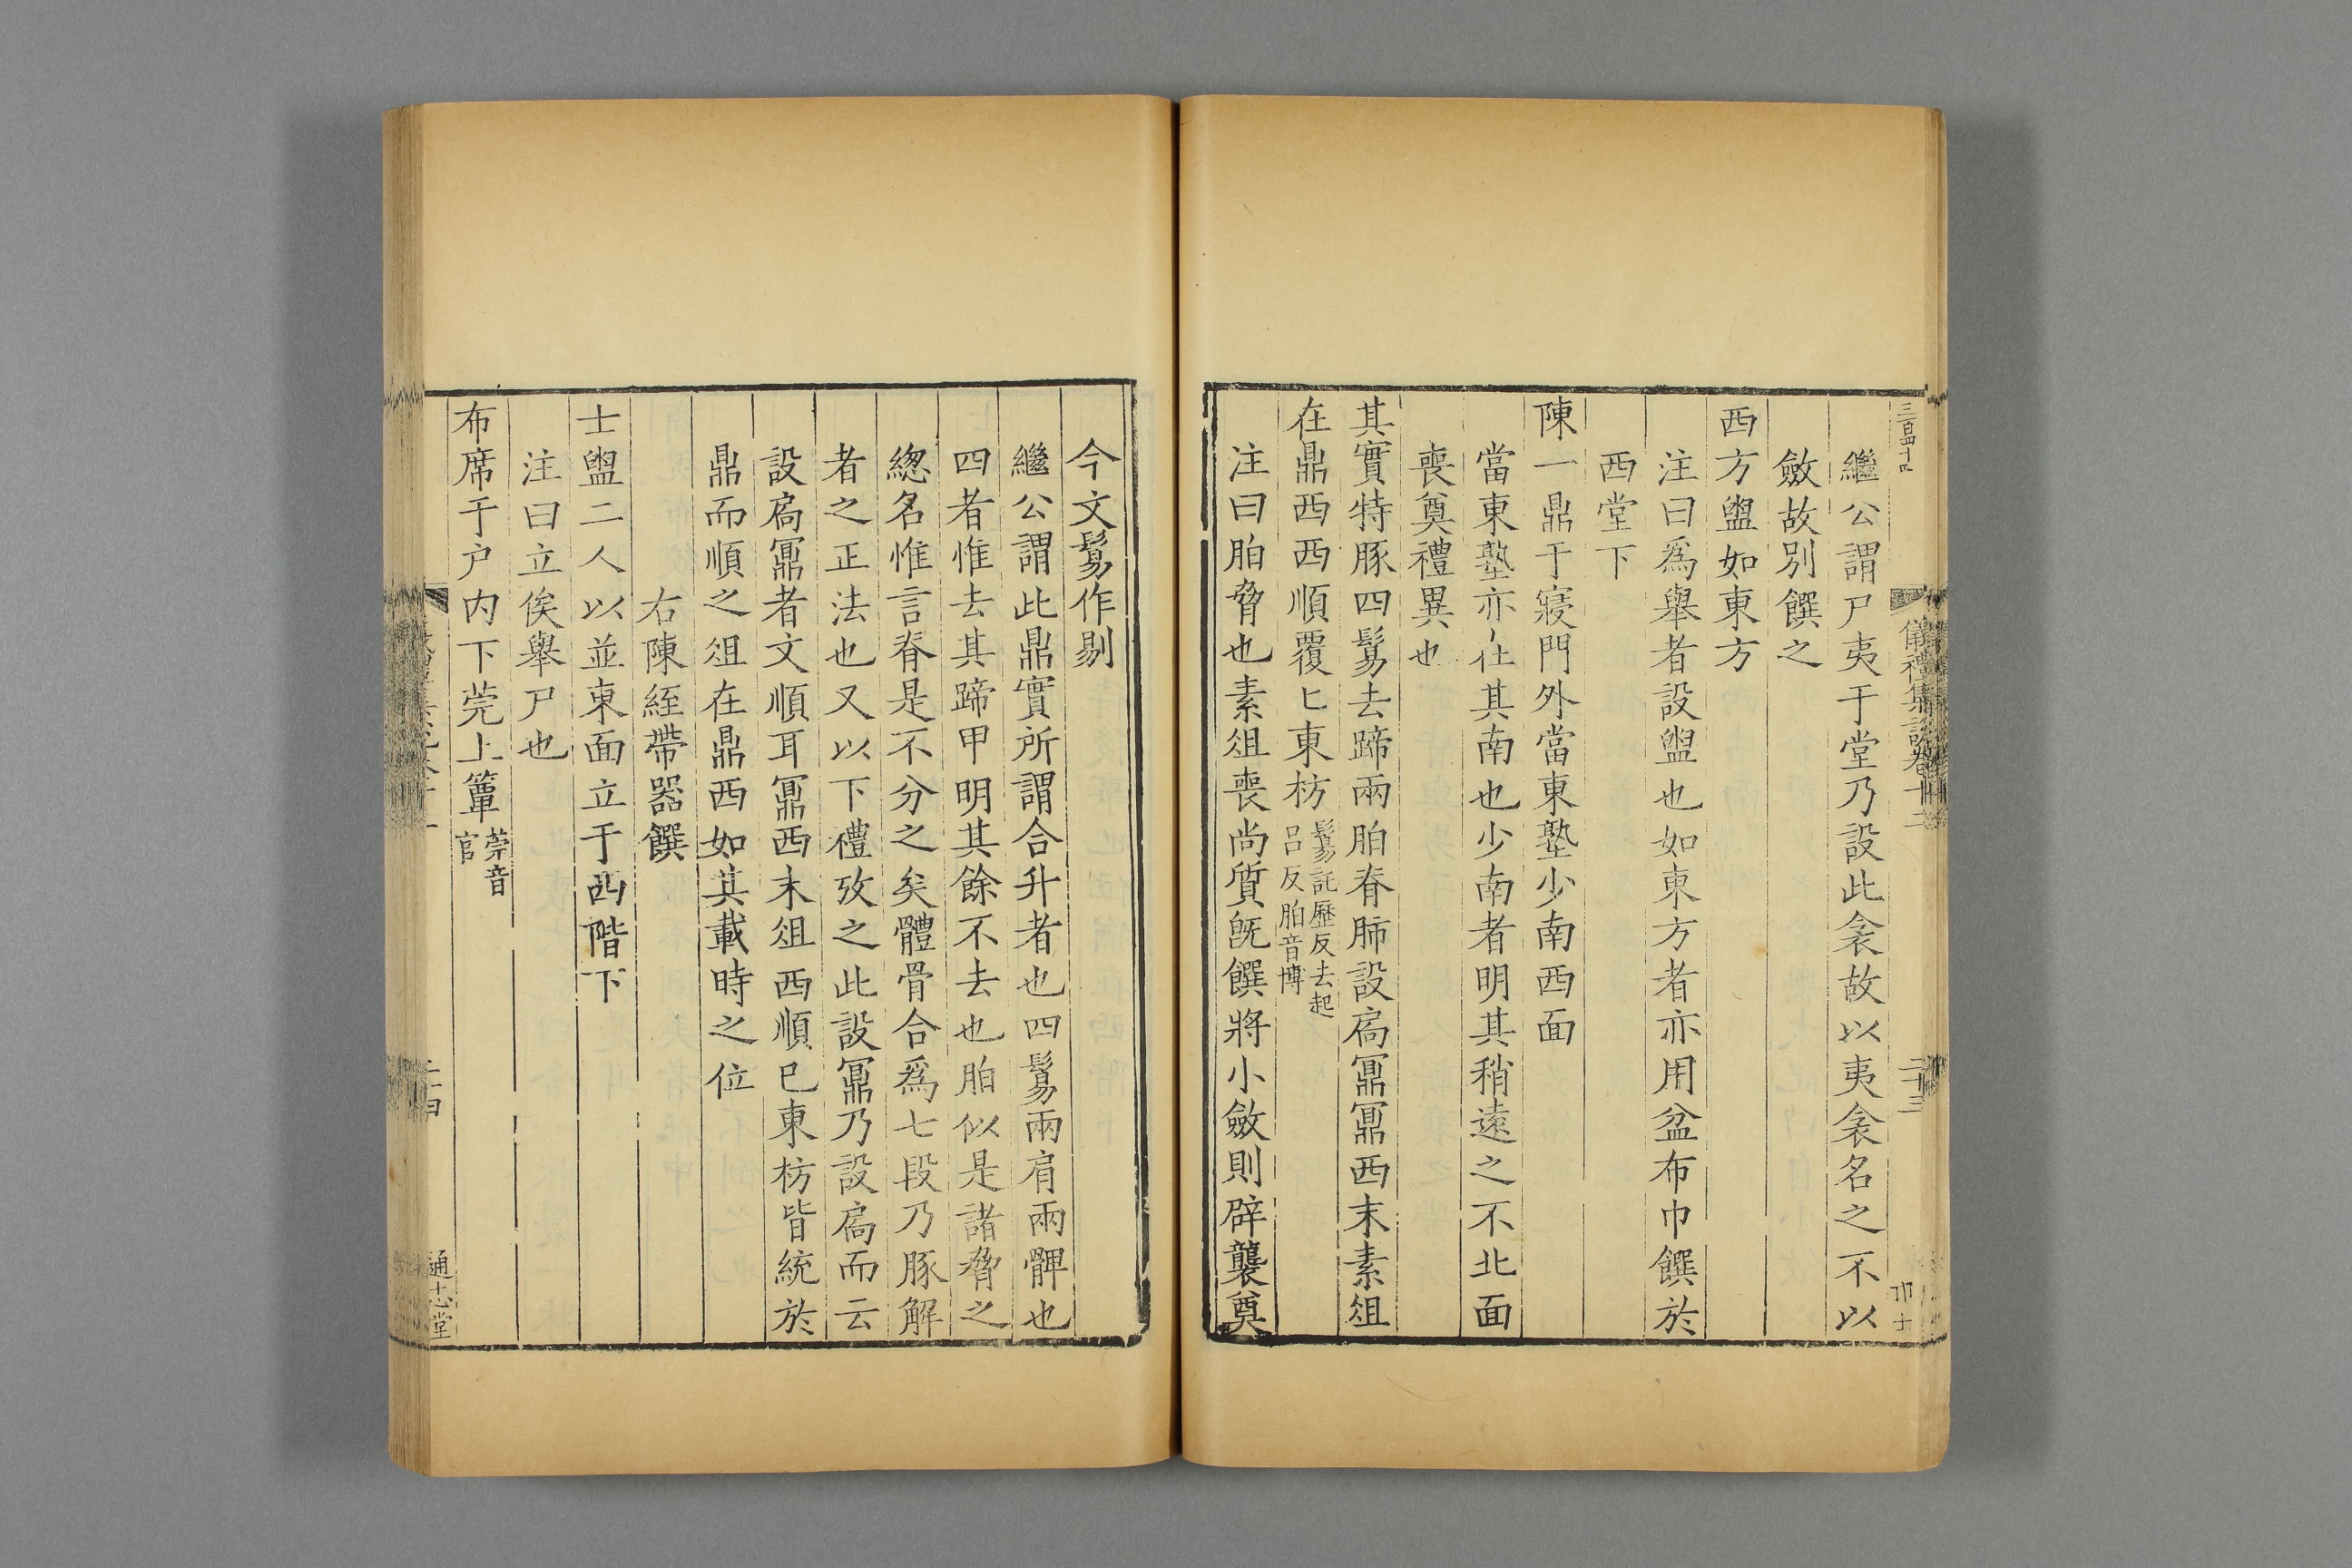 三百四十四
儀禮集說卷十二
二十三
繼公謂尸夷于堂乃設此衾故以夷衾名之不以
斂故別饌之
西方盥如東方
注曰爲舉者設盥也如東方者亦用盆布巾饌於
西堂下
陳一鼎于寢門外當東塾少南西面
當東塾亦在其南也少南者明其稍遠之不北面
喪奠禮異也
其實特豚四鬄去蹄兩胉脊肺設扃鼏鼏西末素俎
在鼎西西順覆匕東枋
鬄託歷反去起
呂反胉音博
注曰胉脅也素俎喪尚質旣饌將小斂則辟襲奠
今文鬄作剔
繼公謂此鼎實所謂合升者也四鬄兩肩兩髀也
四者惟去其蹄甲明其餘不去也胉似是諸脅之
總名惟言脊是不分之矣體骨合爲七段乃豚解
者之正法也又以下禮攷之此設鼏乃設扃而云
設扃鼏者文順耳鼏西末俎西順巳東枋皆統於
鼎而順之俎在鼎西如其載時之位
右陳絰帶器饌
士盥二人以並東面立于西階下
注曰立俟舉尸也
布席于户内下莞上簟
莞音
官
二十四
通志堂